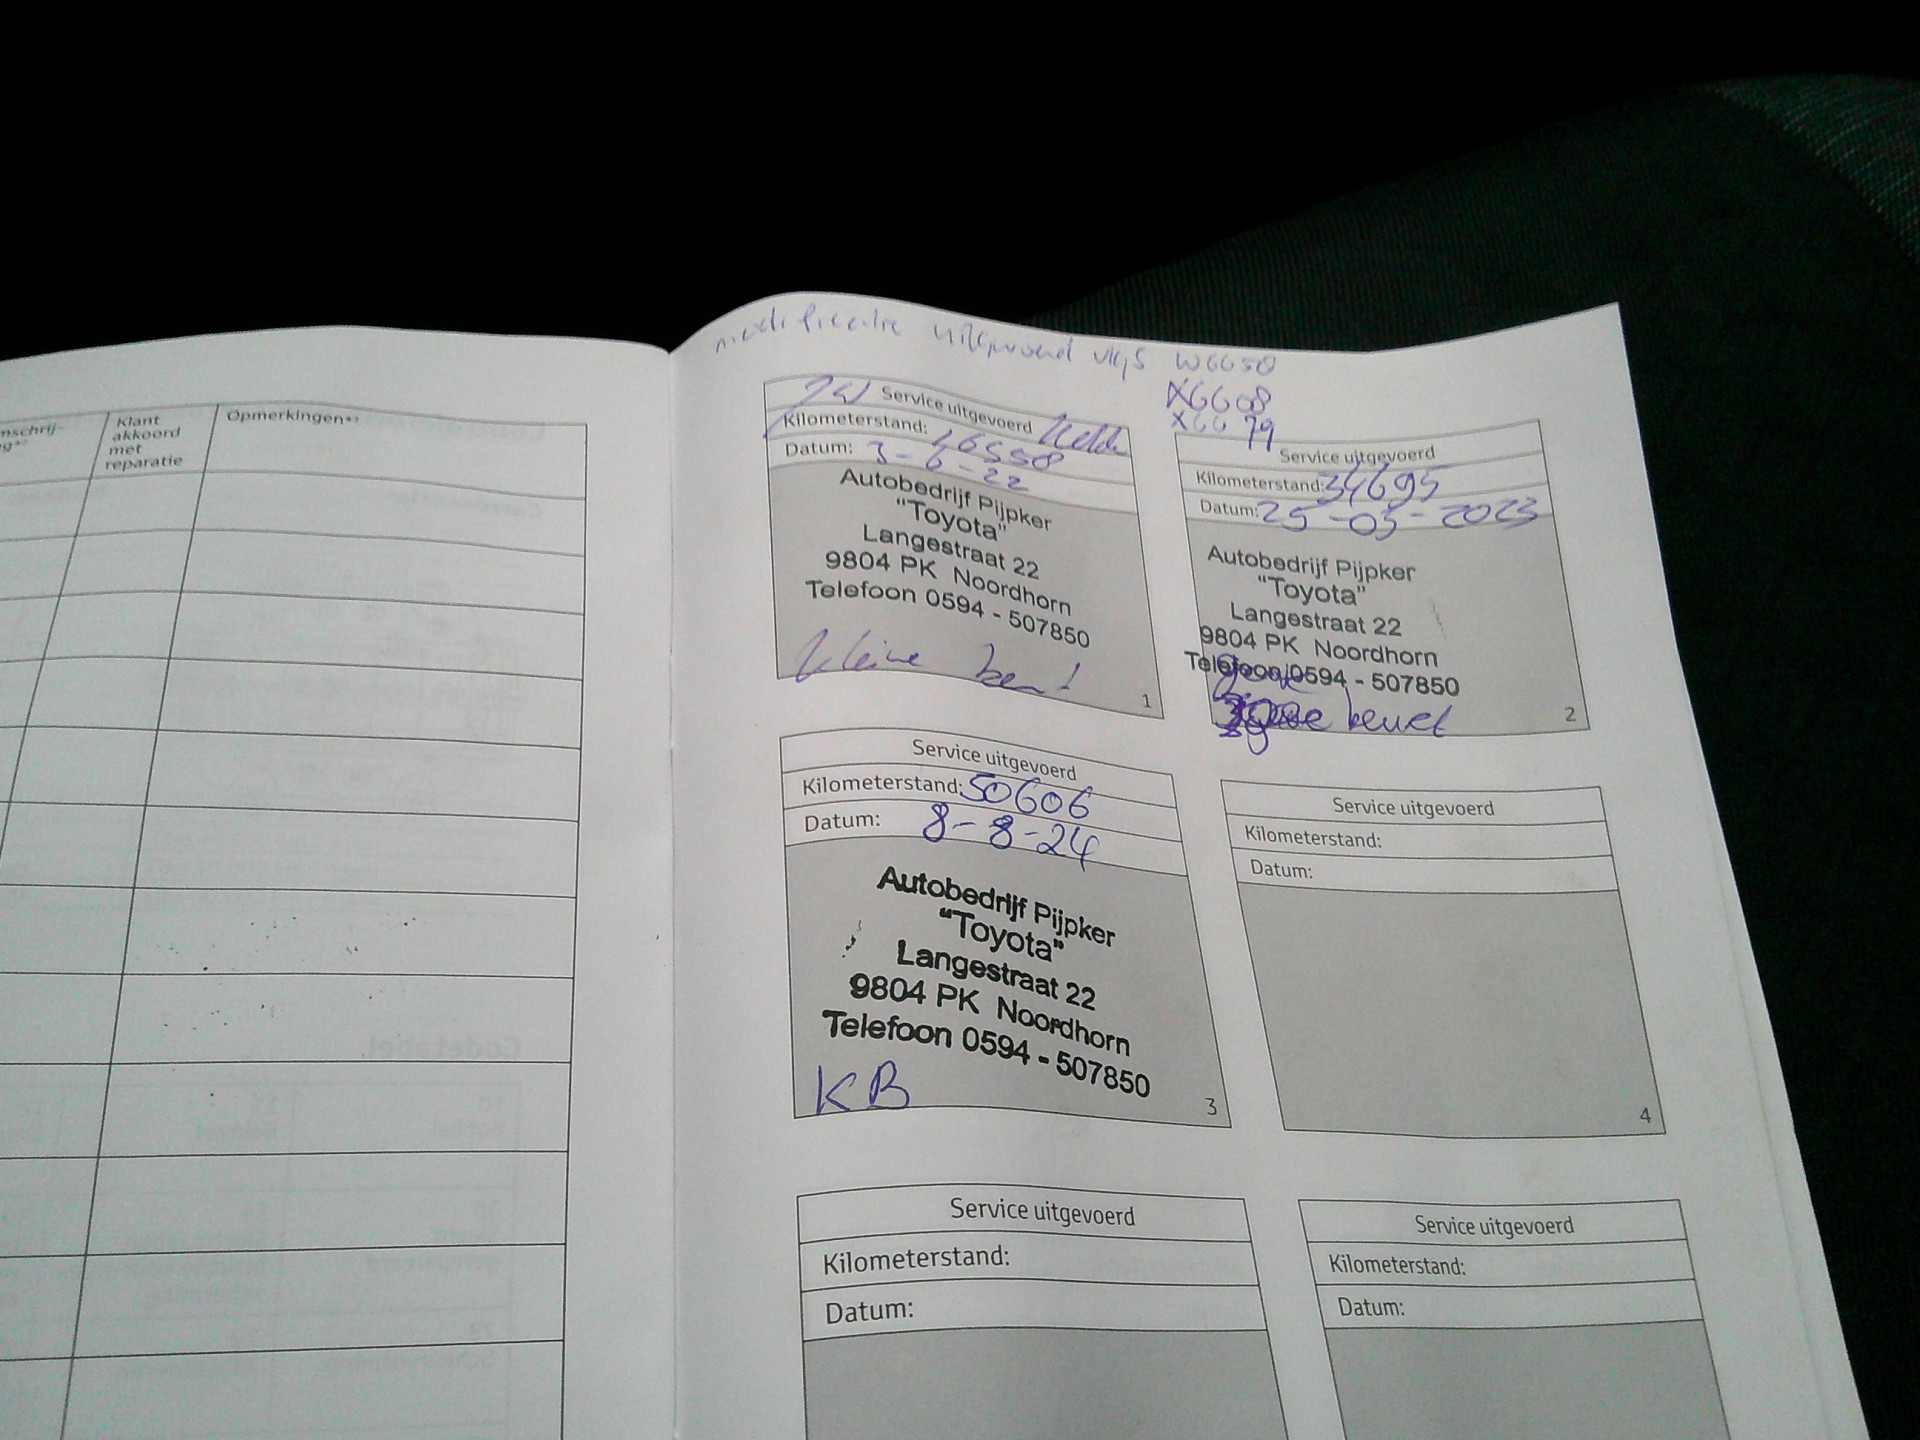 Klant
akkoord
met
reparatie
Opmerkingen
uitgevoerd vlgs WGG58
XGG08
XGG79
Service uitgevoerd
Kilometerstand: 16558
Datum: 3-6-22
Autobedrijf Pijpker
"Toyota"
Langestraat 22
9804 PK Noordhorn
Telefoon 0594 - 507850
kleine beurt
1
Service uitgevoerd
Kilometerstand: 34695
Datum: 25-05-2023
Autobedrijf Pijpker
"Toyota"
Langestraat 22
9804 PK Noordhorn
Telefoon 0594 - 507850
beurt
2
Service uitgevoerd
Kilometerstand: 50606
Datum: 8-8-24
Autobedrijf Pijpker
"Toyota"
Langestraat 22
9804 PK Noordhorn
Telefoon 0594 - 507850
KB
3
Service uitgevoerd
Kilometerstand:
Datum:
4
Service uitgevoerd
Kilometerstand:
Datum:
Service uitgevoerd
Kilometerstand:
Datum: